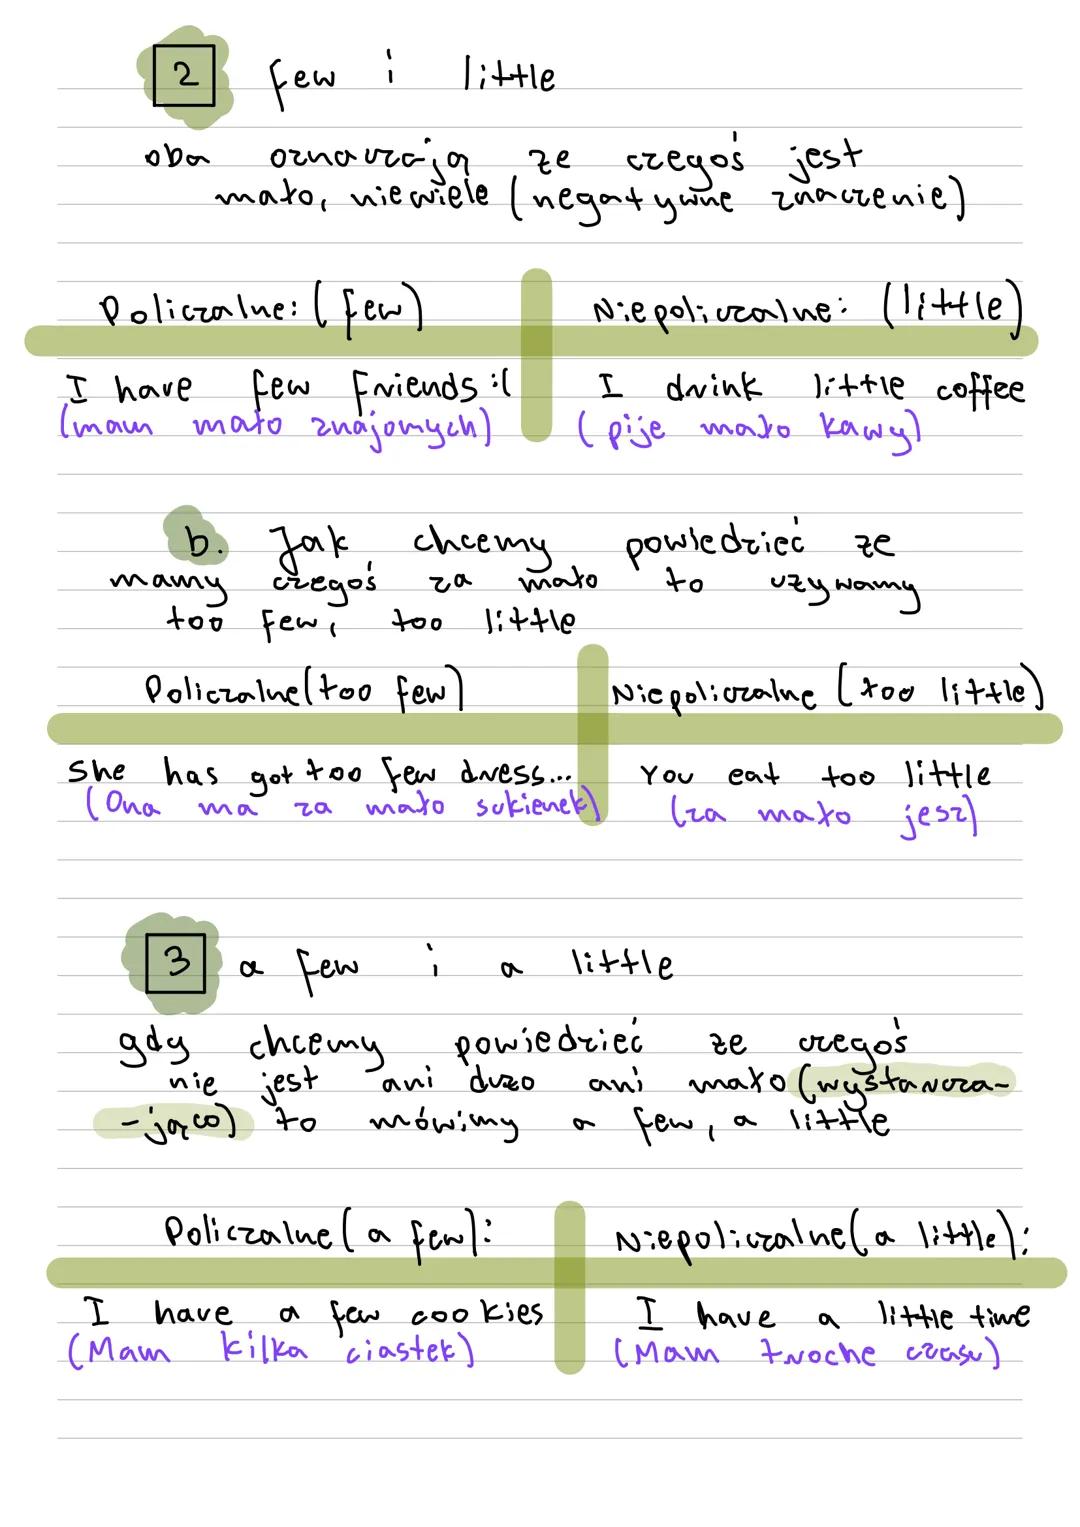 2 few i little
oba oznaczają ze czegoś jest
mało, niewiele (negatywne znaczenie)
Policzalne: (few)
Niepoliczalne: (little)
I have few friends :(
(mam mało znajomych)
I drink little coffee
(pije mało kawy)
b. Jak chcemy powiedzieć ze
mamy czegoś za mało to uzywamy
too few, too little
Policzalne (too few)
Niepoliczalne (too little)
She has got too few dress...
(Ona ma za mało sukienek)
You eat too little
(za mało jesz)
3 a few i a little
gdy chcemy powiedzieć ze czegoś
nie jest ani duzo ani mało (wystarcza-
-jąco) to mówimy a few, a little
Policzalne (a few):
Niepoliczalne (a little):
I have a few cookies
(Mam kilka ciastek)
I have a little time
(Mam troche czasu)